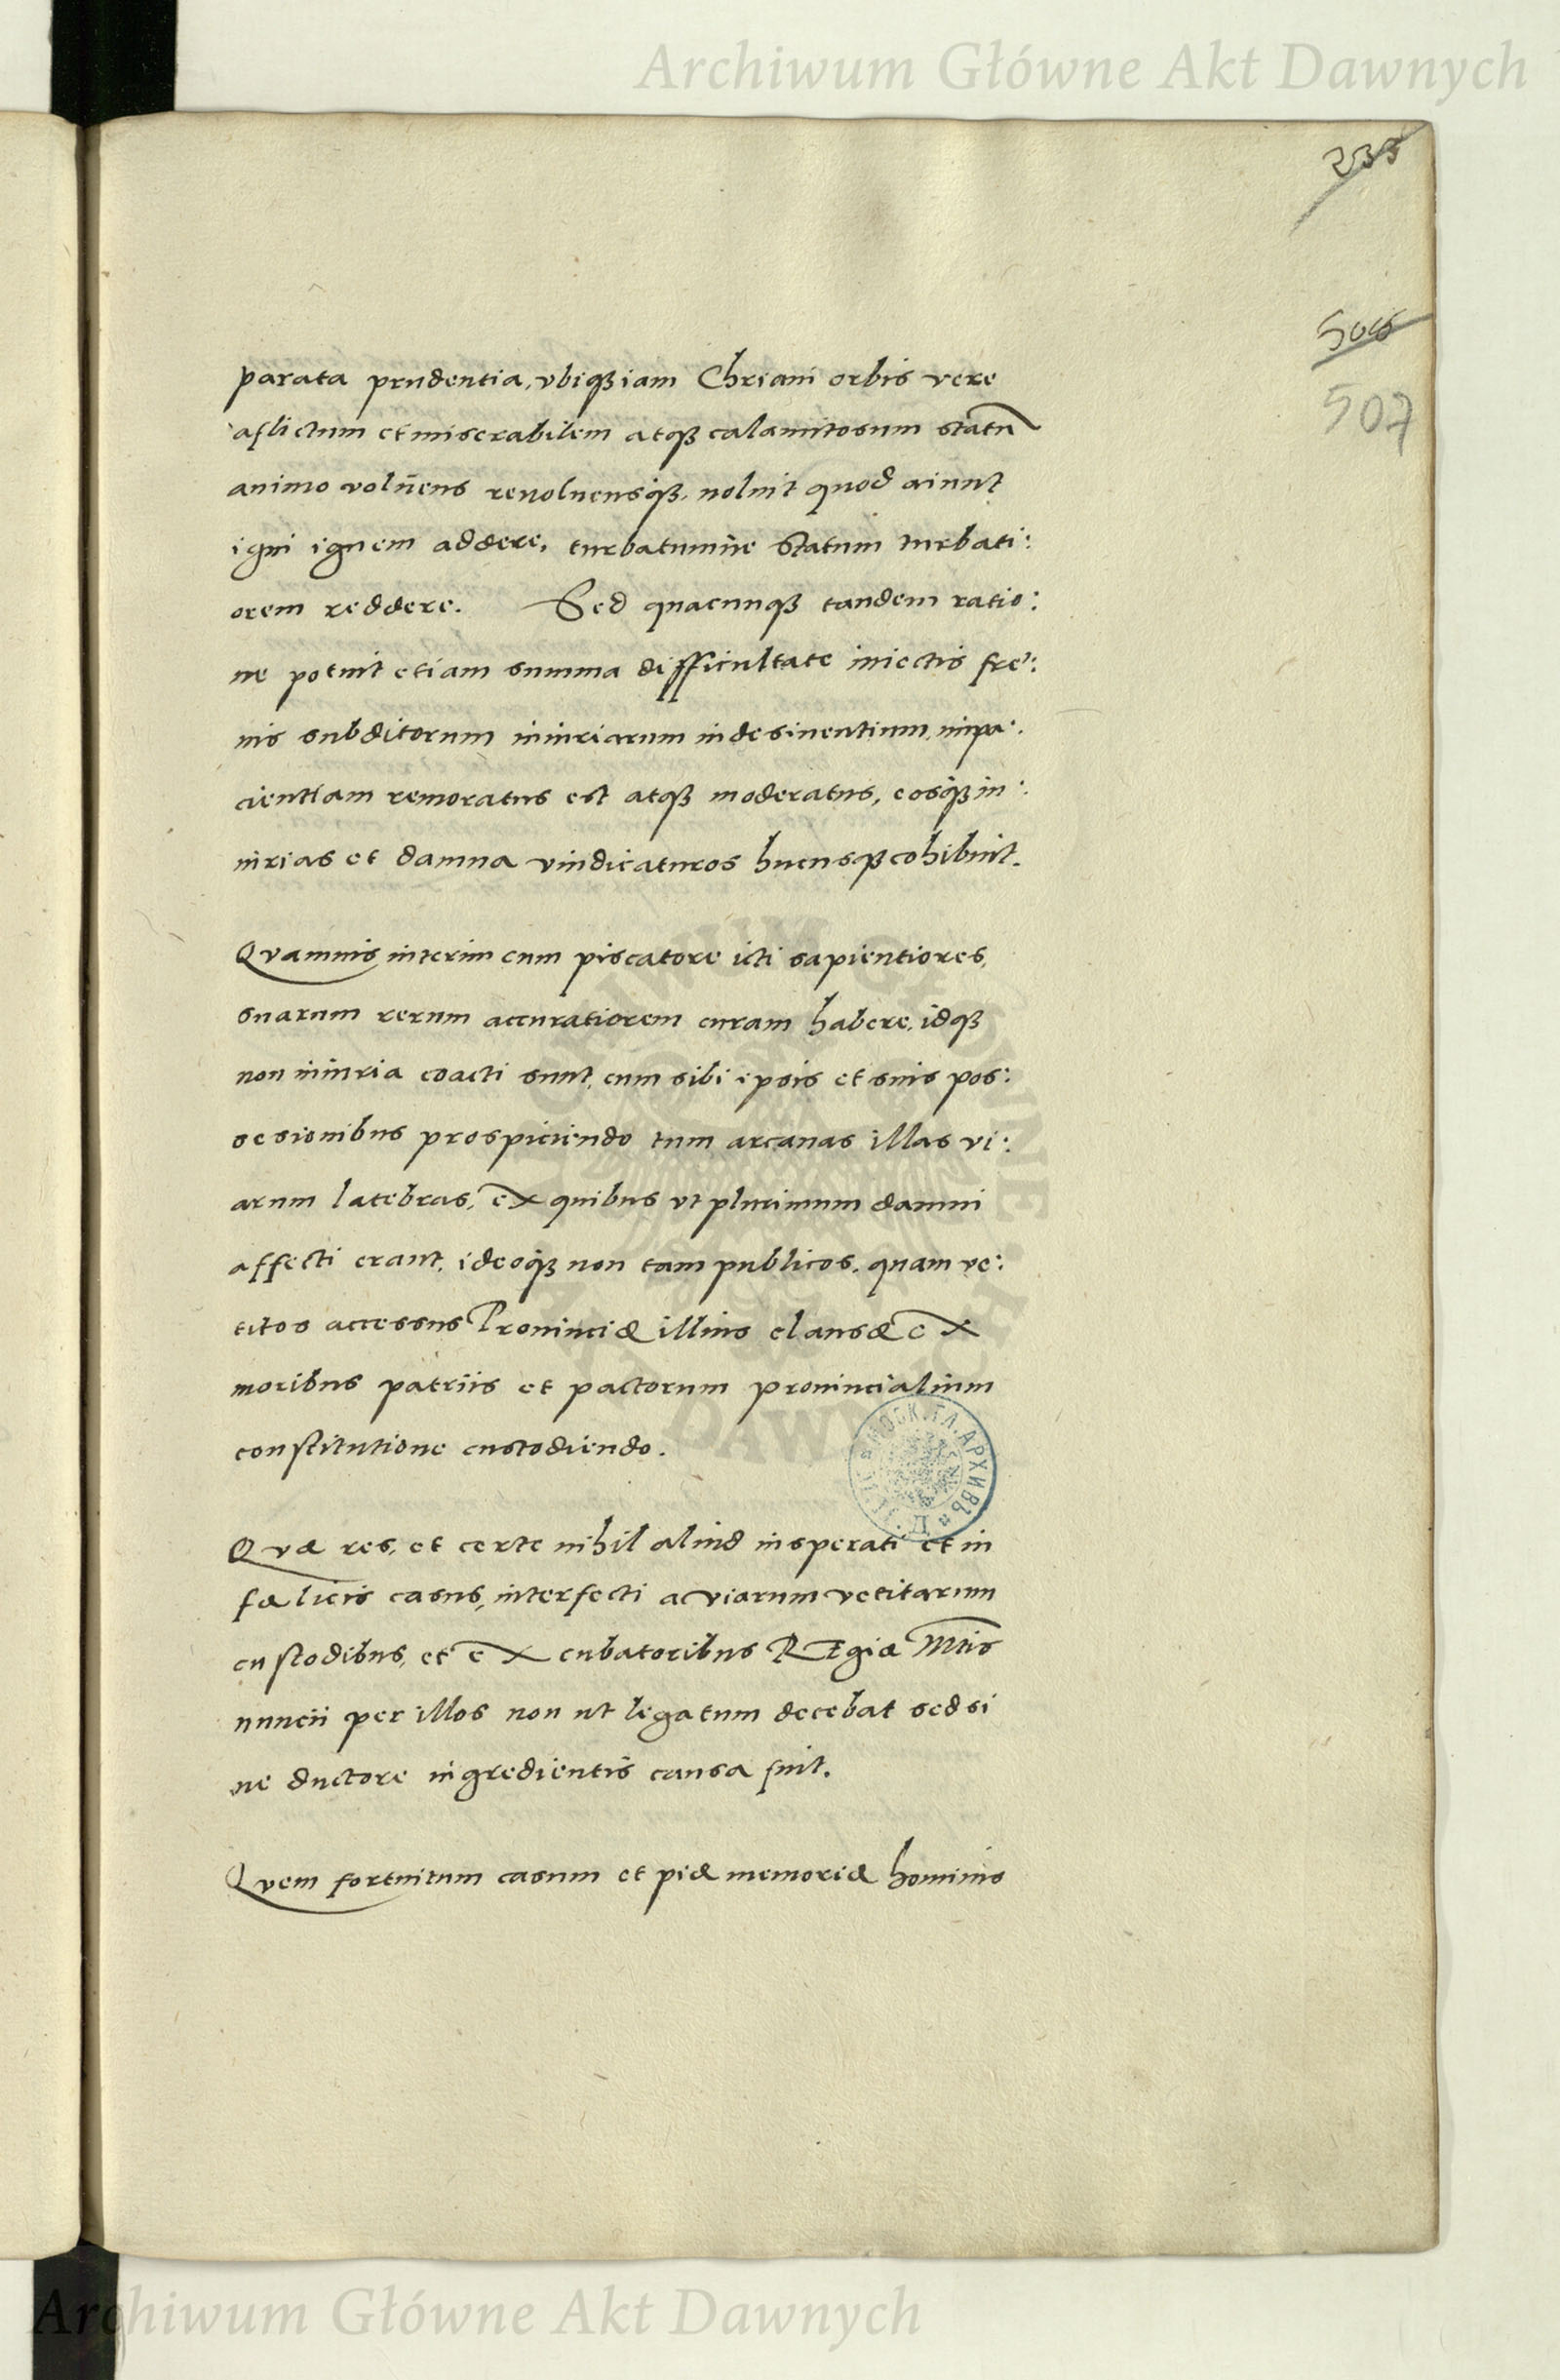 Archiwum Główne Akt Dawnych
233
506
507
parata prudentia, vbiqȝ iam Chriani orbis vere
aflictum et miserabilem atqȝ calamitosum statũ
animo volũens reuoluensqȝ, noluit quod aiunt
igni ignem addere, turbatumũe statum turbati:
orem reddere. Sed quacunqȝ tandem ratio:
ne potuit etiam summa difficultate iniectis fre:
nis subditorum iniuriarum indesinentium, impa:
cientiam remoratus est atqȝ moderatus, eosqȝ in:
iurias et damna vindicaturos hucusqȝ cohibuit.
Quamuis interim cum piscatore icti sapientiores,
suarum rerum accuratiorem curam habere, idqȝ
non iniuria coacti sunt, cum sibi ipsis et suis pos:
sesionibus prospiciendo tum arcanas illas vi:
arum latebras, ex quibus vt plurimum damni
affecti erant, ideoqȝ non tam publicos, quam ve:
titos accessus Prouinciæ illius clausæ ex
moribus patriis et pactorum prouincialium
constitutione custodiendo.
МОСК. ГЛ. АРХИВЪ
Quæ res, et certe nihil aliud insperati et in
fælicis casus, interfecti a viarum vetitarum
custodibus, et excubatoribus REgiæ Mtis
nuncii per illos non ut legatum decebat sed si
ne ductore ingredientis causa fuit.
Quem fortuitum casum et piæ memoriæ hominis
Archiwum Główne Akt Dawnych